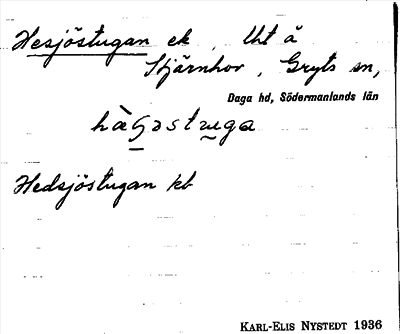 Hesjöstugan ek, Uht å
Stjärnhov, Gryts sn,
Daga hd, Södermanlands län
Hedsjöstugan kb
KARL-ELIS NYSTEDT 1936